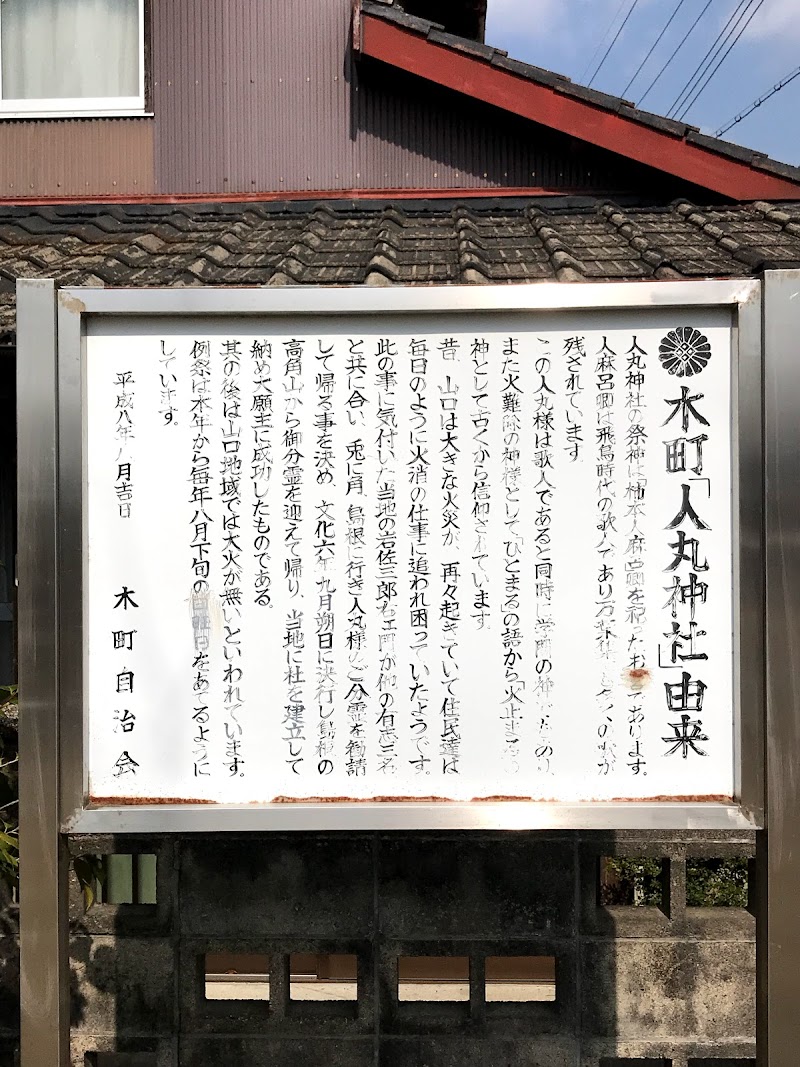 木町「人丸神社」由来
人丸神社の祭神は「柿本人麻呂卿を祀ったお であります。
人麻呂卿は飛鳥時代の歌人であり万葉集にも多くの歌が
残されています
この人丸様は歌人であると同時に学問の神様であり、
また火難除の神様として「ひとまる」の語から「火止まる」の
神として古くから信仰されています
昔、山口は大きな火災が、再々起きていて住民達は
毎日のように火消の仕事に追われ困っていたとうです。
此の事に気付いた当地の岩佐三郎右エ門が他の有志三名
と共に合い、兎に角、島根に行き人丸様のご分霊を勧請
して帰る事を決め、文化六年九月朔日に決行し島根の
高角山から御分霊を迎えて帰り、当地に社を建立して
納め大願主に成功したものである。
其の後は山口地域では大火が無いといわれています。
例祭は本年から毎年八月下旬の日曜日をあてるように
しています。
平成八年八月吉日
木町自治会